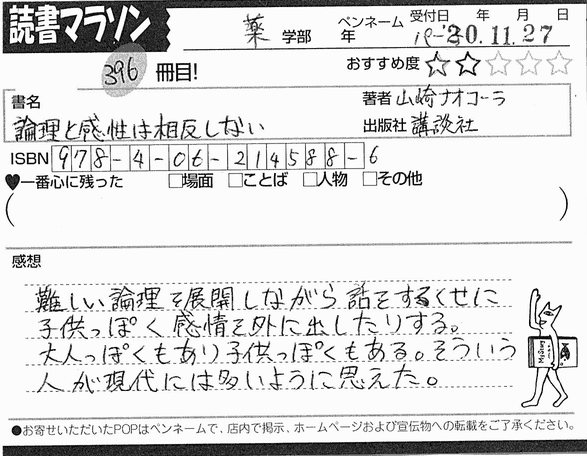 読書マラソン
薬 学部 年 ペンネーム 受付日 年 月 日
'20.11.27
396 冊目! おすすめ度 ★★☆☆☆
書名 著者 山崎ナオコーラ
論理と感性は相反しない 出版社 講談社
ISBN 978-4-06-214588-6
♥一番心に残った □場面 □ことば □人物 □その他
( )
感想
難しい論理を展開しながら話をするくせに
子供っぽく感情を外に出したりする。
大人っぽくもあり子供っぽくもある。そういう
人が現代には多いように思えた。
●お寄せいただいたPOPはペンネームで、店内で掲示、ホームページおよび宣伝物への転載をご了承ください。